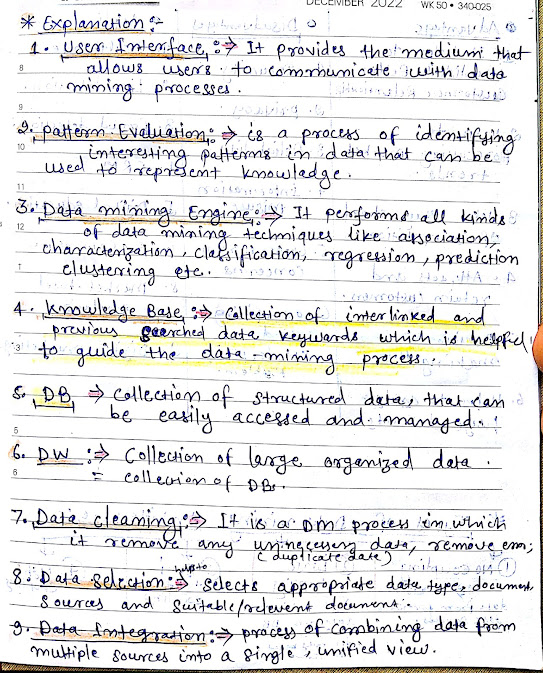 DECEMBER 2022 WK 50 • 340-025
* Explanation :-
1. User Interface :⇒ It provides the medium that
8 allows users to communicate with data
mining processes.
9
2. pattern Evaluation: ⇒ is a process of identifying
10 interesting patterns in data that can be
used to represent knowladge.
11
3. Data mining Engine :⇒ It performs all kinds
12 of data mining techniques like association,
characterization, classification, regression, prediction
clustering etc.
4. Knowledge Base :⇒ Collection of interlinked and
previous searched data keywards which is helpful
3 to guide the data-mining process.
5. DB ⇒ Collection of structured data, that can
be easily accessed and managed.
5
6. DW :⇒ Collection of large organized data.
6 = collection of DBs.
7. Data cleaning :⇒ It is a DM process in which
it remove any unnecessary data, remove
(duplicate data)
8. Data Selection :⇒ selects appropriate data type, document
Sources and suitable/relevent document.
9. Data Integration :⇒ process of combining data from
multiple sources into a single, unified view.